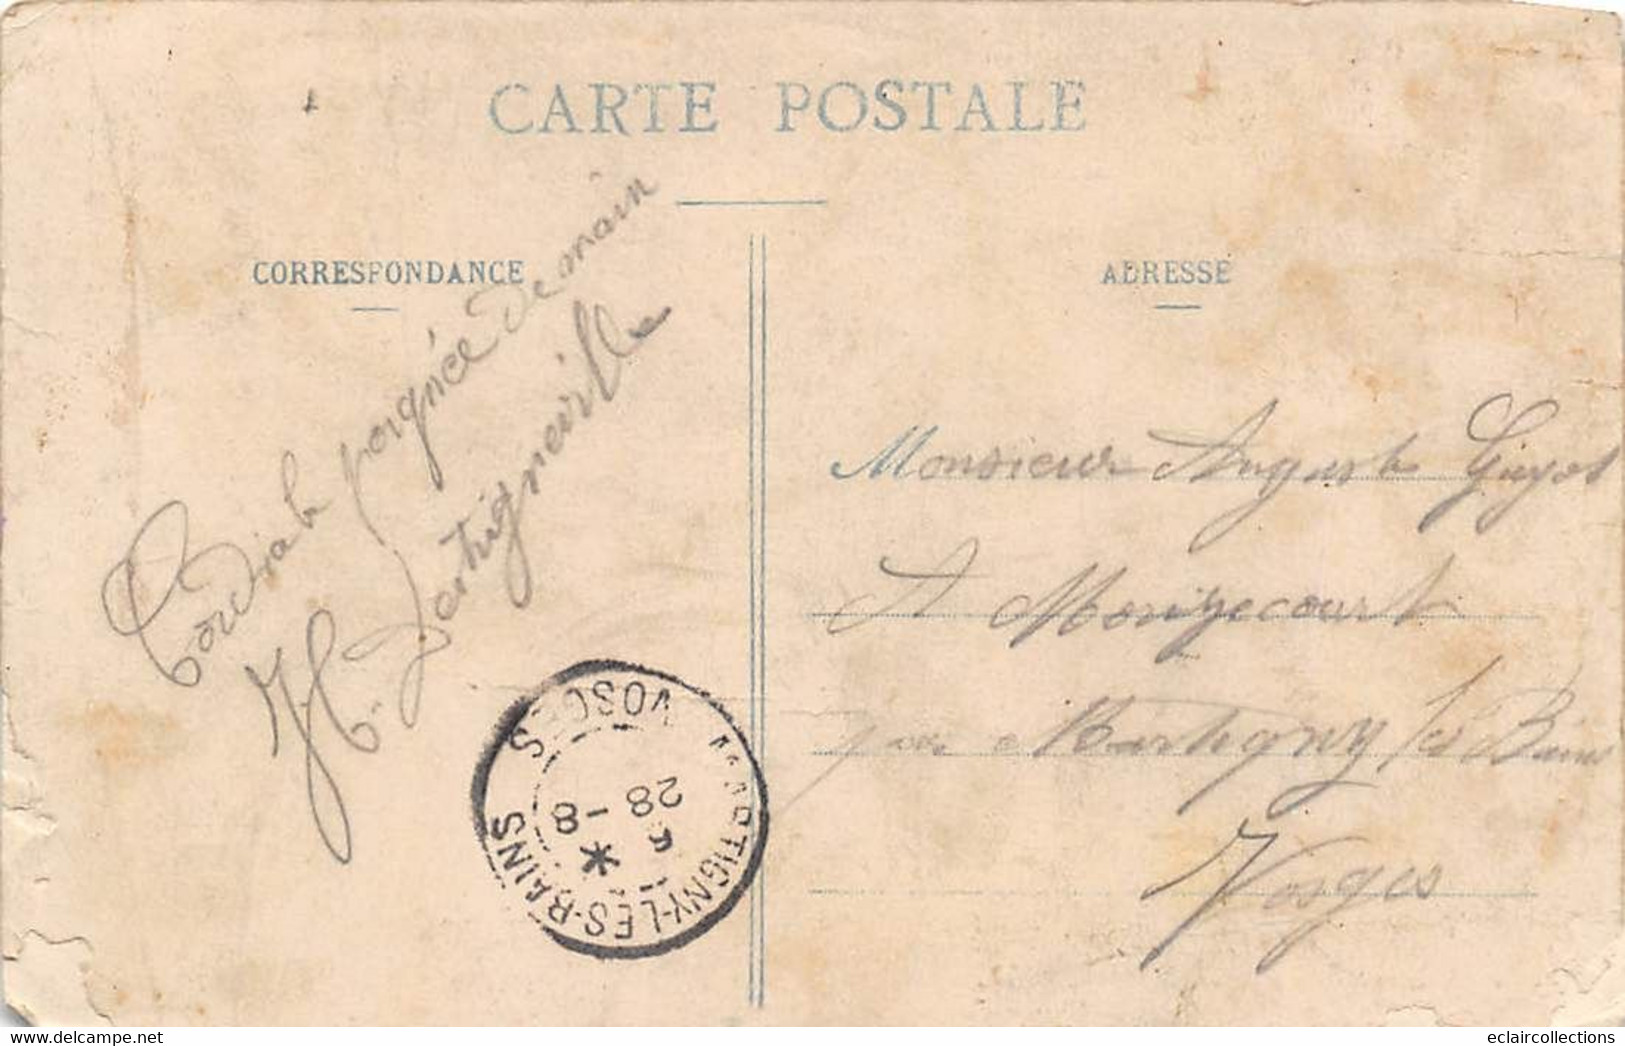 CARTE POSTALE
CORRESPONDANCE
Cordiale poignée de main
H.
ADRESSE
Monsieur Auguste Guyot
A Morizecourt
par Martigny les Bains
Vosges
MARTIGNY-LES-BAINS
VOSGES
*
28 -8
www.delcampe.net
eclaircollections